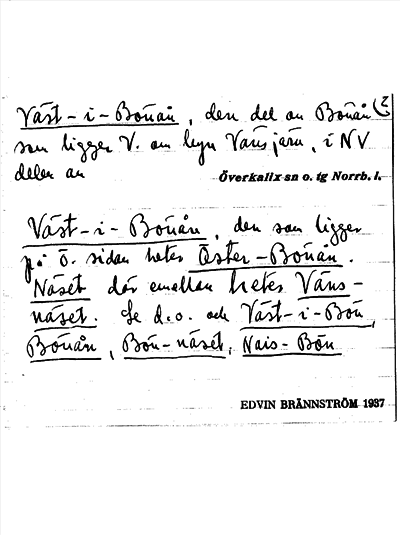 Väst-i-Bönån, den del av Bönån (2
som ligger V. om byn Vänsjärv, i NV
delen av Överkalix sn o. tg Norrb. l.
Väst-i-Bönån, den som ligger
på Ö. sidan heter Öster-Bönån.
Näset där emellan heter Väns-
näset. Se d.o. och Väst-i-Bön,
Bönån, Bön-näset, Nais-Bön
EDVIN BRÄNNSTRÖM 1937